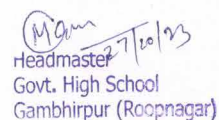 27/10/23
Headmaster
Govt. High School
Gambhirpur (Roopnagar)